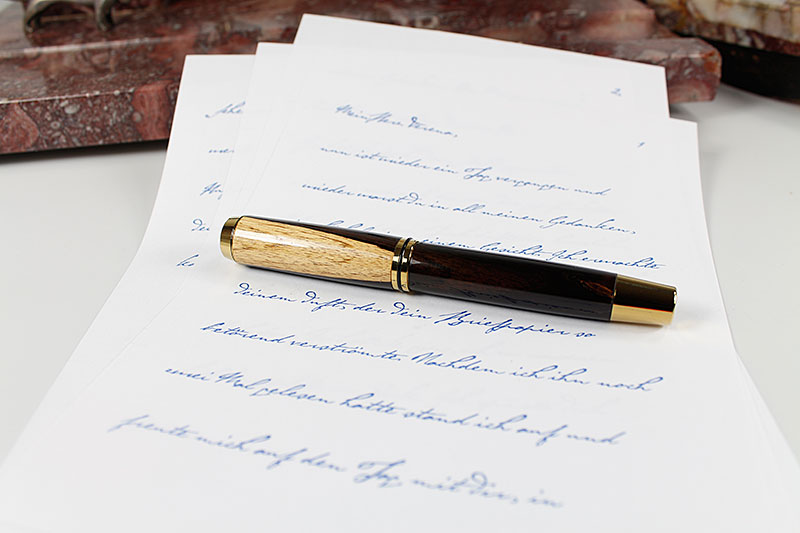 2.
1
Verena,
nun ist wieder ein Tag vergangen und
wieder warst du in all meinen Gedanken,
Gesicht. Ich erwachte
deinem Duft, der dein Briefpapier so
betörend verströmte. Nachdem ich ihn noch
zwei Mal gelesen hatte stand ich auf und
freute mich auf den Tag mit dir, in